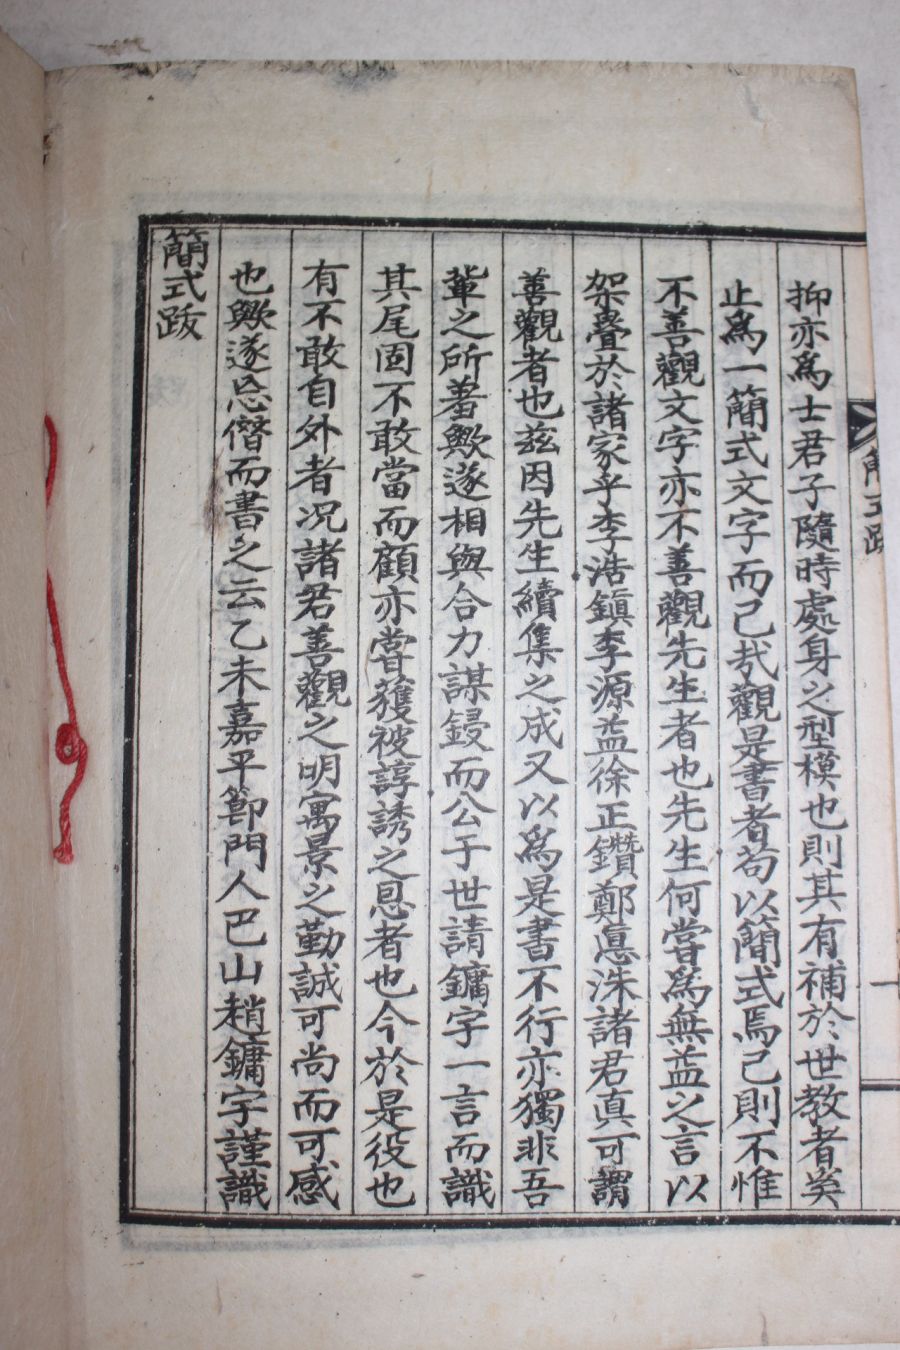 簡式跋
一
抑亦爲士君子隨時處身之型模也則其有補於世教者奚
止爲一簡式文字而已哉觀是書者苟以簡式焉已則不惟
不善觀文字亦不善觀先生者也先生何嘗爲無益之言以
架疊於諸家乎李浩鎭李源益徐正鑽鄭惪洙諸君真可謂
善觀者也茲因先生續集之成又以爲是書不行亦獨非吾
輩之所羞歟遂相與合力謀鋟而公于世請鏞字一言而識
其尾固不敢當而顧亦嘗獲被諄誘之恩者也今於是役也
有不敢自外者况諸君善觀之明寓景之勤誠可尚而可感
也歟遂忘僭而書之云乙未嘉平節門人巴山趙鏞字謹識
簡式跋